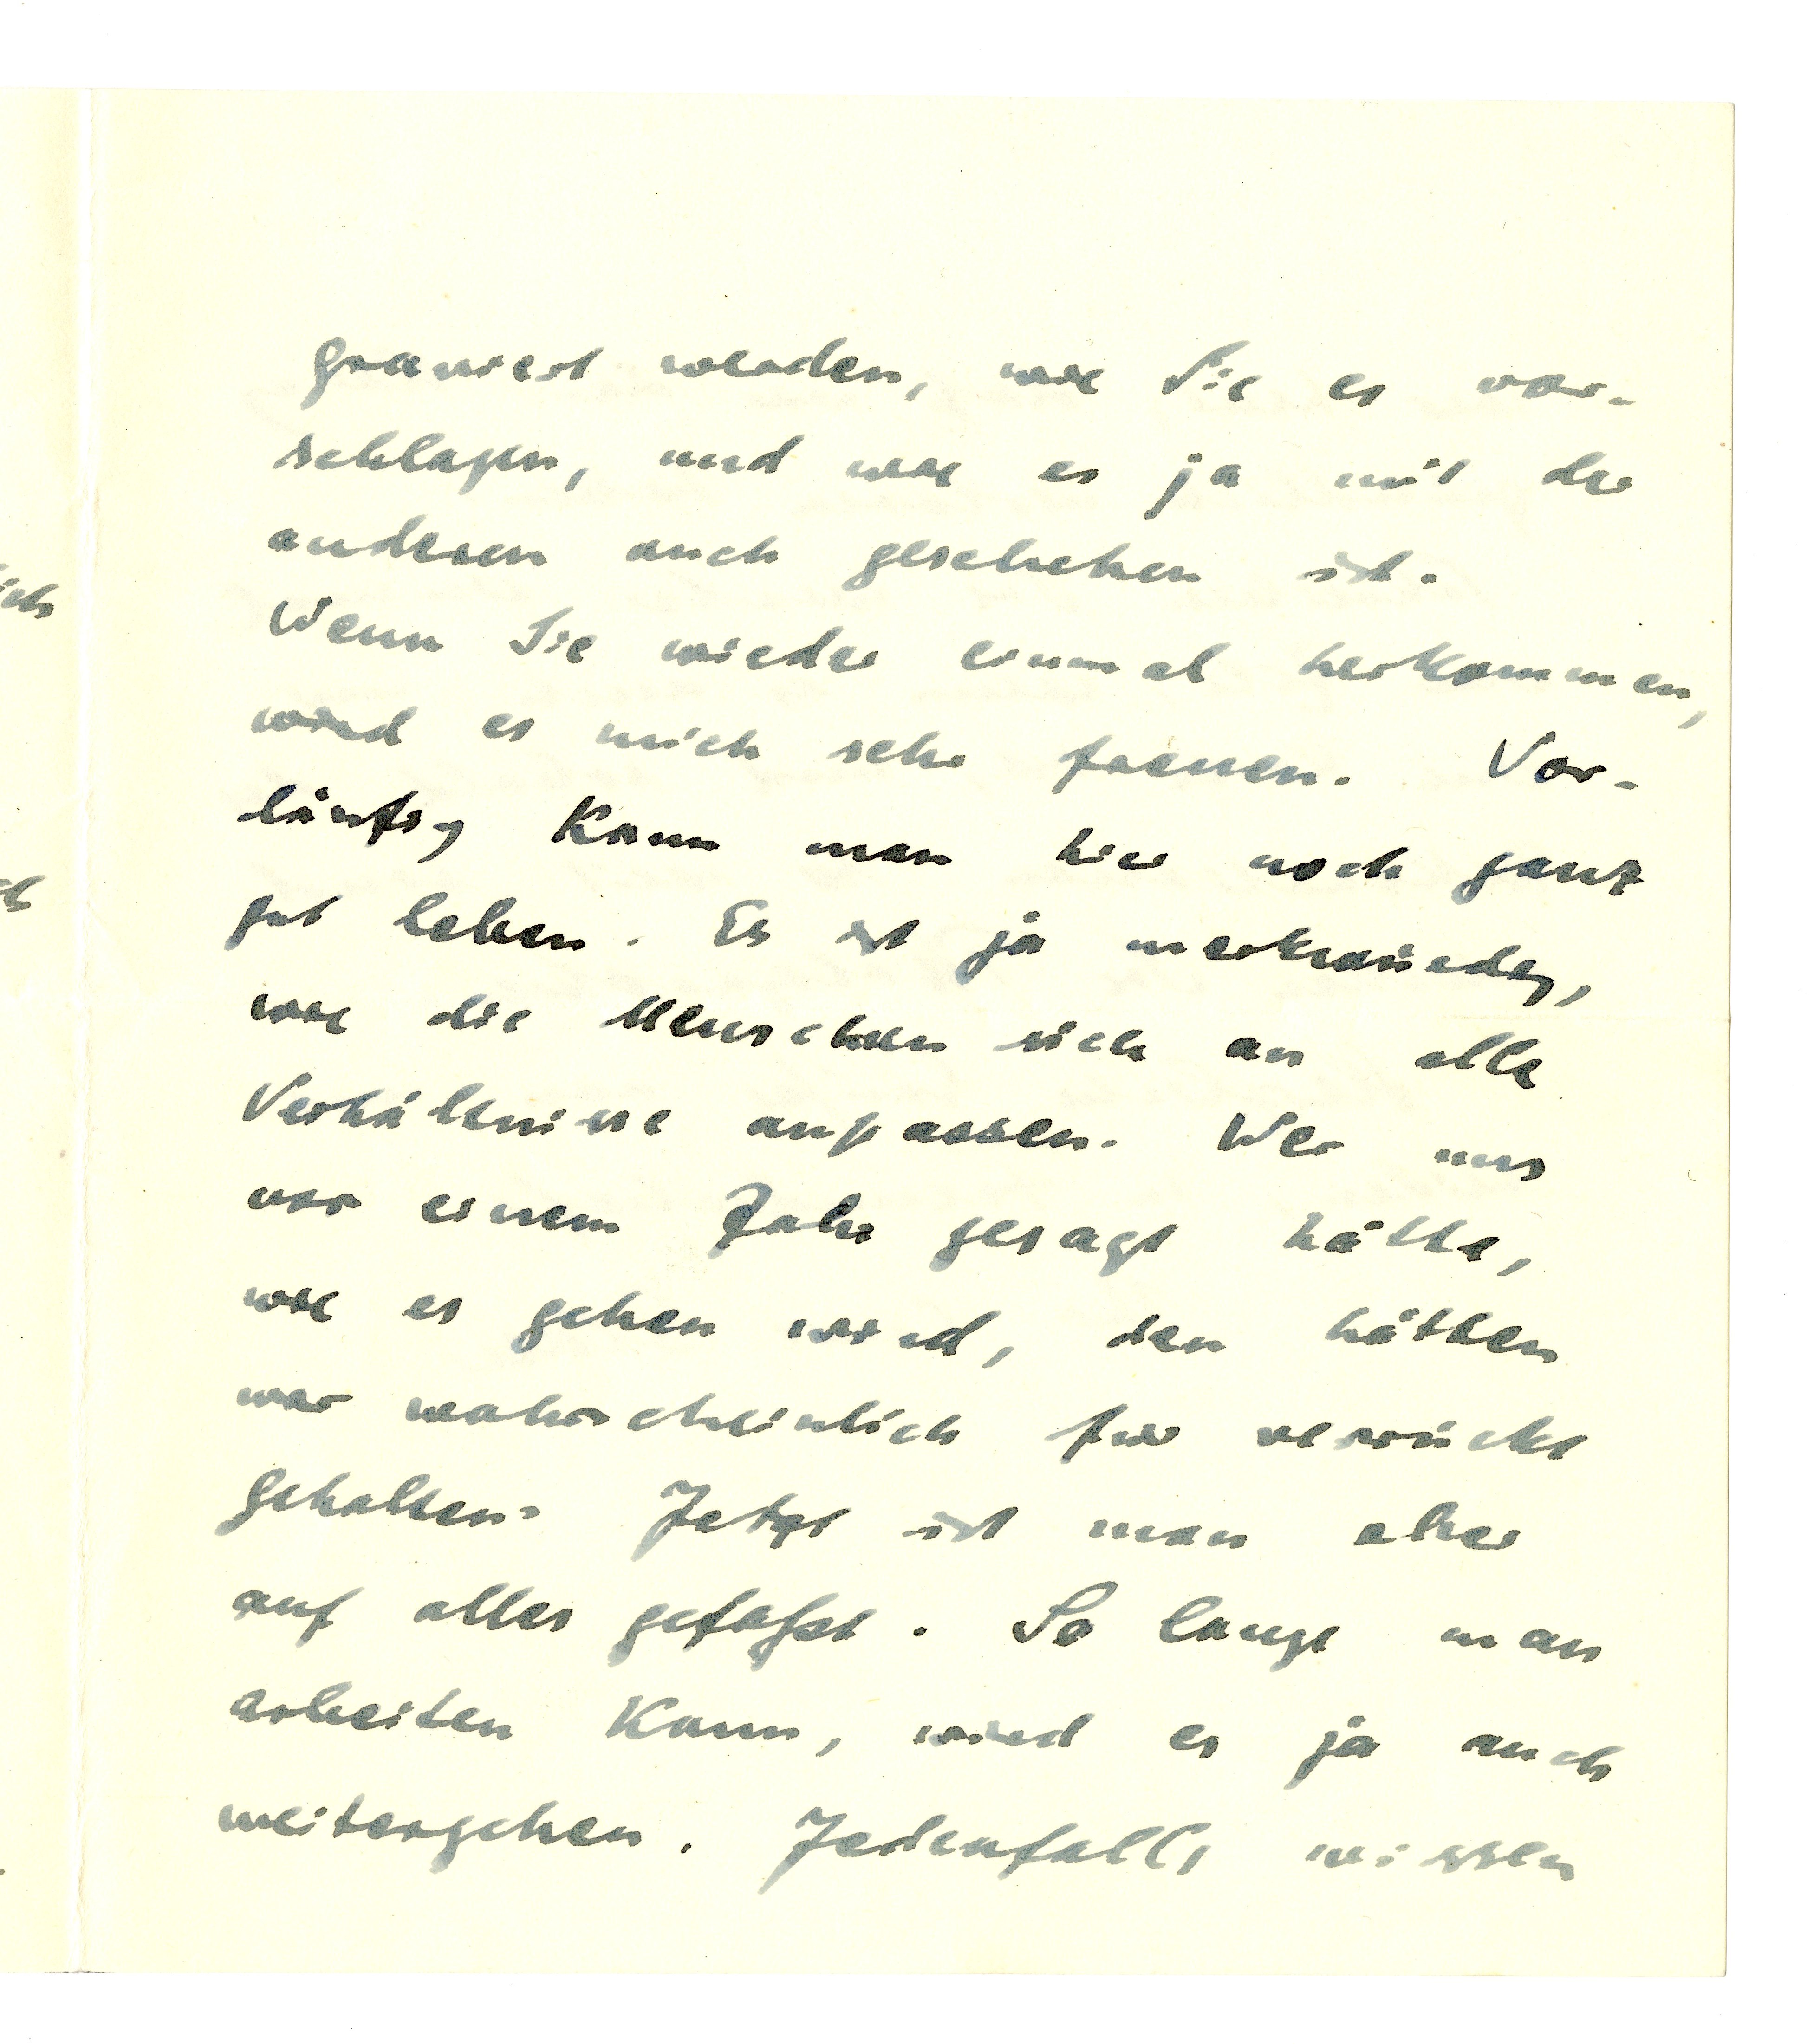 graviert werden, wie Sie es vor-
schlagen, und wie es ja mit der
anderen auch geschehen ist.
Wenn Sie wieder einmal herkommen,
wird es mich sehr freuen. Vor-
läufig kann man hier noch ganz
gut leben. Es ist ja merkwürdig,
wie die Menschen sich an alle
Verhältnisse anpassen. Wer uns
vor einem Jahr gesagt hätte,
wie es gehen wird, den hätten
wir wahrscheinlich für verrückt
gehalten. Jetzt ist man eher
auf alles gefaßt. So lange man
arbeiten kann, wird es ja auch
weitergehen. Jedenfalls wissen